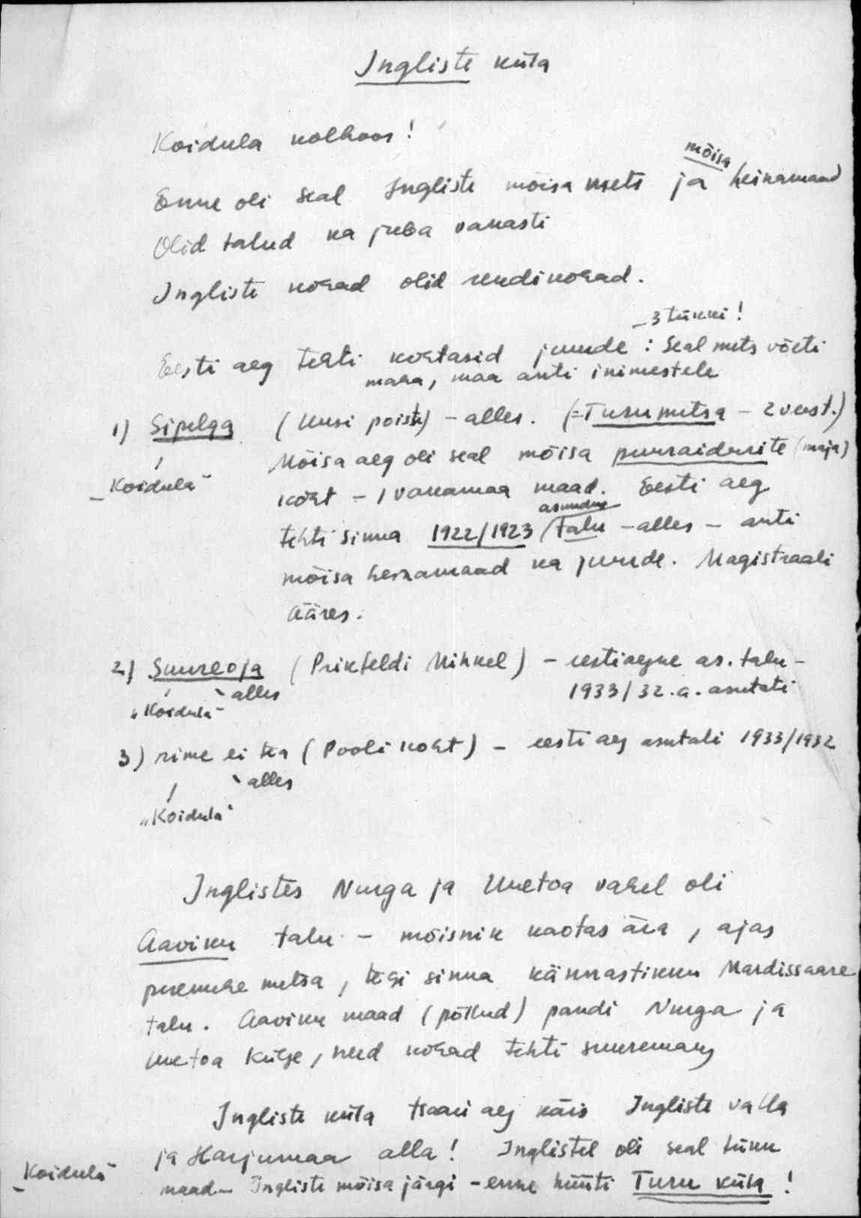 Ingliste küla
Koidula kolhoos!
mõisa
Enne oli seal Ingliste mõisa mets ja heinamaad
Olid talud ka juba vanasti
Ingliste kohad olid rendikohad.
– 3 tükki!
Eesti aeg tehti kohtasid juurde: seal mets võeti
maha, maa anti inimestele
1) Sipelga (Uusi poisth) – alles. (= Turumetsa – 2 verst.)
Mõisa aeg oli seal mõisa puuraidurite (maja)
„Koidula"
koht – 1 vakamaa maad. Eesti aeg
asundus
tehti sinna 1922/1923 / talu – alles – anti
mõisa heinamaad ka juurde. Magistraali
ääres.
2) Suureoja (Prikfeldi Mihkel) – eestiaegne as. talu –
alles 1933/32.a. asutati
„Koidula"
3) nime ei tea (Pooli koht) – eesti aeg asutati 1933/1932
alles
„Koidula"
Inglistes Nurga ja Uuetoa vahel oli
Aaviku talu – mõisnik kaotas ära, ajas
peremehe metsa, tegi sinna kännastikku Mardissaare
talu. Aaviku maad (põllud) pandi Nurga ja
Uuetoa külge, need kohad tehti suuremaks
Ingliste küla tsaari aeg käis Ingliste valla
ja Harjumaa alla! Inglistel oli seal tükk
„Koidula"
maad – Ingliste mõisa järgi – enne hüüti Turu küla!